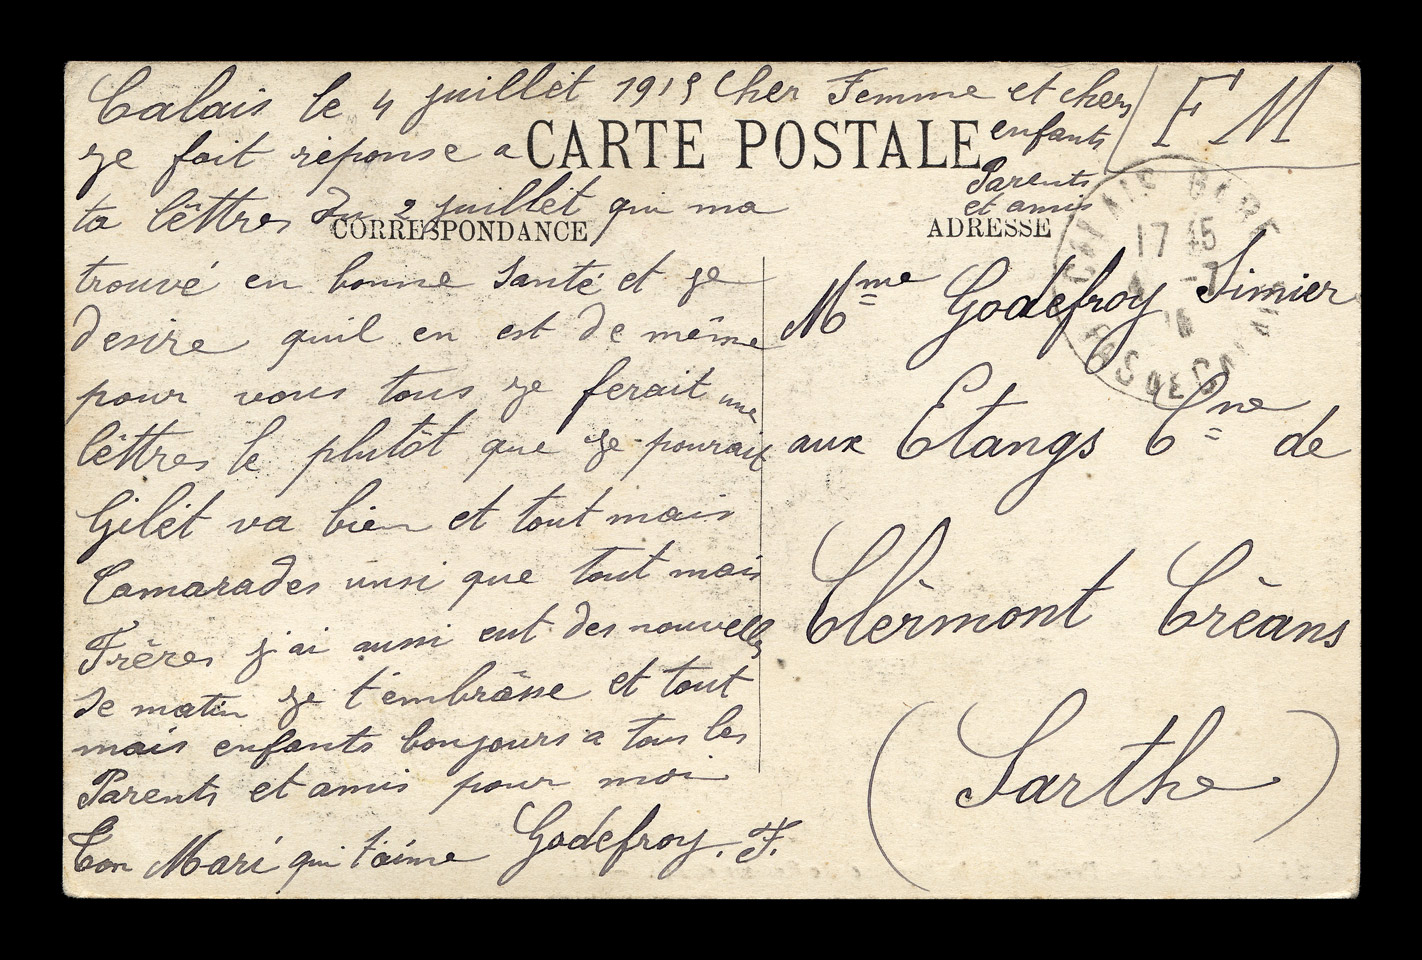 Calais le 4 juillet 1915 Cher Femme et chers
enfants
Parents
et amis
F M
CARTE POSTALE
je fait réponse a
ta lêttres du 2 juillet qui ma
CORRESPONDANCE
ADRESSE
trouvé en bonne Santé et je
desire quil en est de même
pour vous tous je ferait une
lêttres le plutôt que je pourait
Gilet va bien et tout mais
Camarades unsi que tout mais
Frêres j'ai aussi eut des nouvelles
se matin je t'embrâsse et tout
mais enfants bonjours a tous les
Parents et amis pour moi
Ton Mari qui t'aime Godefroy. F.
Mme Godefroy Simier
aux Etangs Cne de
Clèrmont Crèans
(Sarthe)
CALAIS GARE
17 45
4 -7
PAS DE CALAIS